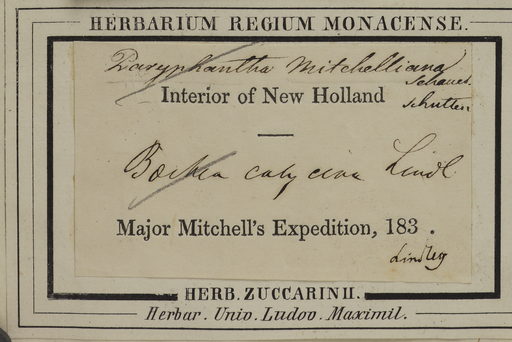 HERBARIUM REGIUM MONACENSE.
Paryphantha Mitchelliana
Schauer
Interior of New Holland
Baekea calycina Lindl
Major Mitchell's Expedition, 183 .
Lindley
HERB. ZUCCARINII.
Herbar. Univ. Ludov. Maximil.